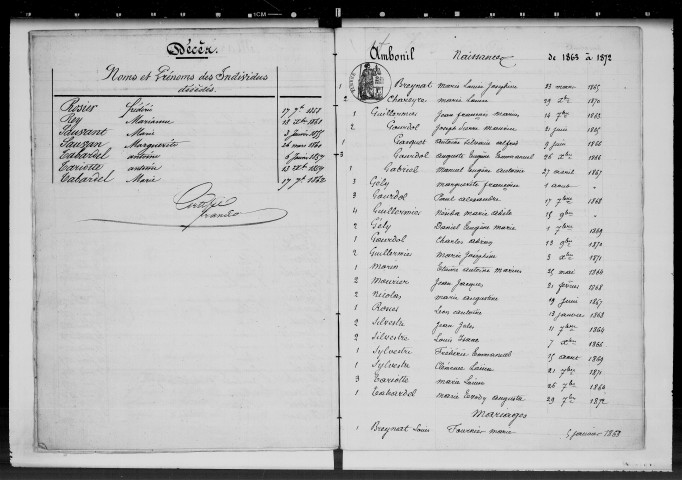 Décès.
Noms et Prénoms des Individus
décédés.
Rosier frédéric 17 7bre 1858
Rey Marianne 18 Xbre 1860
Sauzant Marie 3 Janvier 1855
Sauzan Marguerite 26 mars 1860
Tabardel antoine 6 Janvier 1857
Tariotte antoine 13 Xbre 1859
Tabardel Marie 17 7bre 1862
Certifié
Ambonil Naissances de 1863 à 1872
1 Breynat Marie Louise Joséphine 23 mars 1865
2 Chareyre marie Louise 29 Xbre 1870
1 Guillermier Jean françois Marius 14 7bre 1863
2 Gourdol Joseph Pierre Maurice 21 juin 1865
Antoine Silvain alfred 9 juin 1866
3 Gourdol auguste Eugène Emmanuel 26 Xbre 1866
1 Gabriel Manuel Eugène antoine 27 mars 1867
3 Gély marguerite françoise 1 aout
3 Gourdol Paul alexandre 17 7bre 1868
4 Guillermier marie adèle 18 9bre
2 Gély Daniel Eugène marie 1 7bre 1869
1 Gourdol Charles 13 9bre 1870
2 Guillermier Marie Joséphine 3 Xbre 1871
1 Morin Etienne Antoine Marius 25 mai 1864
2 Mourier Jean Jacques 21 février 1868
2 Nicolas marie augustine 29 juin 1867
1 Roues Léon antoine 12 janvier 1863
2 Silvestre Jean Jules 11 7bre 1864
2 Silvestre Louis Isaac 7 Xbre 1866
1 Sylvestre Frédéric Emmanuel 15 aout 1869
1 Sylvestre Clémence Louise 21 7bre 1871
3 Tariotte marie Louise 26 7bre 1864
1 Tabardel marie auguste 29 7bre 1872
Mariages
1 Breynat Louis Fournier marie 5 janvier 1863